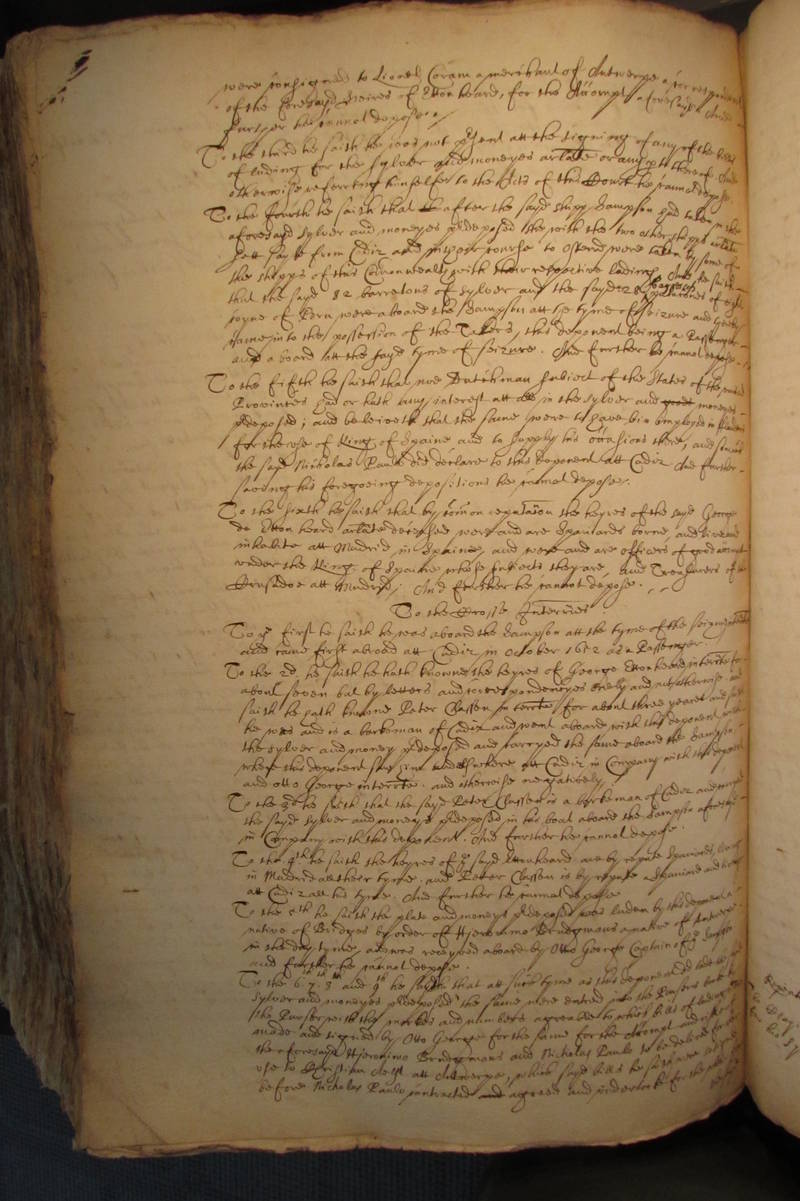 were consigned to Lionell Coram a merchant of Antwerpe a correspondent
of the foresayd heires of Ettonheard, for the Accompt aforesayd And
further hee cannot depose./
To the third he saith he was not present att the signing of any of the bills
of lading for the sylver and moneyes arlate or any pte thereof And
otherwise referring himselfe to the Acts of this Court he cannot depose.
To the fourth he saith that after the sayd shipp Sampson had taken in the
aforesaid sylver and moneyes pdeposed she with the two other shipps arlate
sett sayle from Cadiz and in their course to Ostend were taken by some of
the shipps of this Comonwealth with their respective ladings And he saith
that the sayd 82 barretons of sylver and the sayd 12 bagges of
coyne of were aboard the Sampson att the tyme of seizure and
came into the possession of the Takers, this deponent being a Passenger
and a board att the sayd tyme of seizure. And further he cannot depose.
To the fifth he saith that noe Dutchman subiect of the States of the united
Provinces had or hath any interest att all in the sylver and moneyes
pdeposed; and beleiveth that the same were to have bin imployed in Flanders
for the use of the King of Spaine and to supply his occasions there, and soe
the sayd Nicholas Paulo did declare to this deponent att Cadiz And further
saving his foregoeing depositions he cannot depose.
To the sixth he saith that by comon reputacon the heyres of the sayd George
de Ettonheard arlate deceased were and are Spaniards borne, and live and
inhabite att Madrid in Spaine, and were and are officers of good accompt
under the King of Spaine whose subiects they are, and Treasurers of the
Crusadoe att Madrid; And further he cannot depose.
To the Crosse Interries
To ye first he saith he was aboard the Sampson att the tyme of the seizure
and came first aboard att Cadiz in October 1652 as a Passenger.
To the 2d. he saith he hath knowne the heyres of George Ettonheard
about seven but by letters and correspondencyes onely and not otherwise and
saith he hath knowne Peter Classen for about three yeares and saith
he was and is a barkeman of Cadiz and went aboard with this deponent with
the sylver and money pdeposed and carryed the same aboard the Sampson
where this deponent saw him and elswhere att Cadiz in Company with this deponent
and Otto George interrte. and otherwise negatively
To the 3d he saith that the sayd Peter Classen is a barkeman of Cadiz and carryed
the sayd sylver and moneyes pdeposed in his boat aboard the Sampson aforesayd
in Company with this deponent. And further he cannot depose.
To the 4th he saith the heyres of ye sayd Ettonheard are by repute Spaniards, live
in Madrid all their tyme. and Peter Classen is by repute a Spaniard and lived
att Cadiz all his tyme. And further he cannot depose
To the 5th he saith the plate and moneyes pdeposed was laden by this deponent a
native of Bridges by order of Hieronimo Brudegmans a native of Antwerpe
in the day tyme, and was received aboard by Otto George Captain of ye Sampson
and further he cannot depose.
To the 6th 7th 8th and 9th he saith that att such tyme as this deponent did
sylver and moneyes pdeposed the same were entred into the Pursers booke by
the Purser with the markes and numbers agreeable to which bills of lading were
made and signed by Otto George for the same for the accompt and
the foresayd Hieronimo Brudegmans and Nicholas Paulo to be delivered for the
use to Christian att Antwerpe, which sayd bills he saith were
before Nicholas Paulo contracted and agreed and undertooke for the